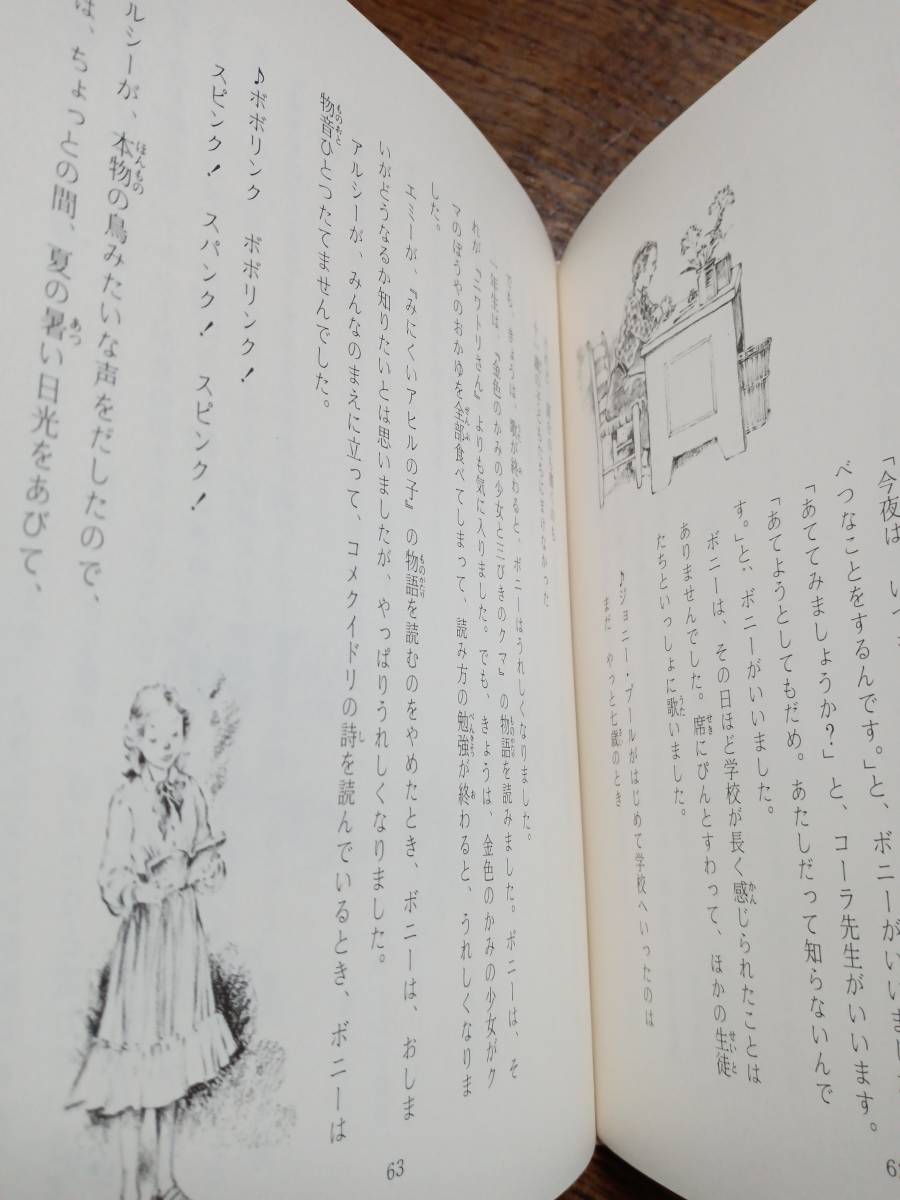 「今夜は、いっ
べつなことをするんです。」と、ボニーがいいまし
「あててみましょうか?」と、コーラ先生がいいます。
「あてようとしてもだめ。あたしだって知らないんで
す。」と、ボニーがいいました。
ボニーは、その日ほど学校が長く感じられたことは
ありませんでした。席にぴんとすわって、ほかの生徒
たちといっしょに歌いました。
♪ジョニー・プールがはじめて学校へいったのは
まだ やっと七歳のとき
でも、きょうは、歌が終わると、ボニーはうれしくなりました。
一年生は、『金色のかみの少女と三びきのクマ』の物語を読みました。ボニーは、そ
れが『ニワトリさん』よりも気に入りました。でも、きょうは、金色のかみの少女がク
マのぼうやのおかゆを全部食べてしまって、読み方の勉強が終わると、うれしくなりま
した。
エミーが、『みにくいアヒルの子』の物語を読むのをやめたとき、ボニーは、おしま
いがどうなるか知りたいとは思いましたが、やっぱりうれしくなりました。
アルシーが、みんなのまえに立って、コメクイドリの詩を読んでいるとき、ボニーは
物音ひとつたてませんでした。
♪ボボリンク ボボリンク!
スピンク! スパンク! スピンク!
ルシーが、本物の鳥みたいな声をだしたので、
は、ちょっとの間、夏の暑い日光をあびて、
63